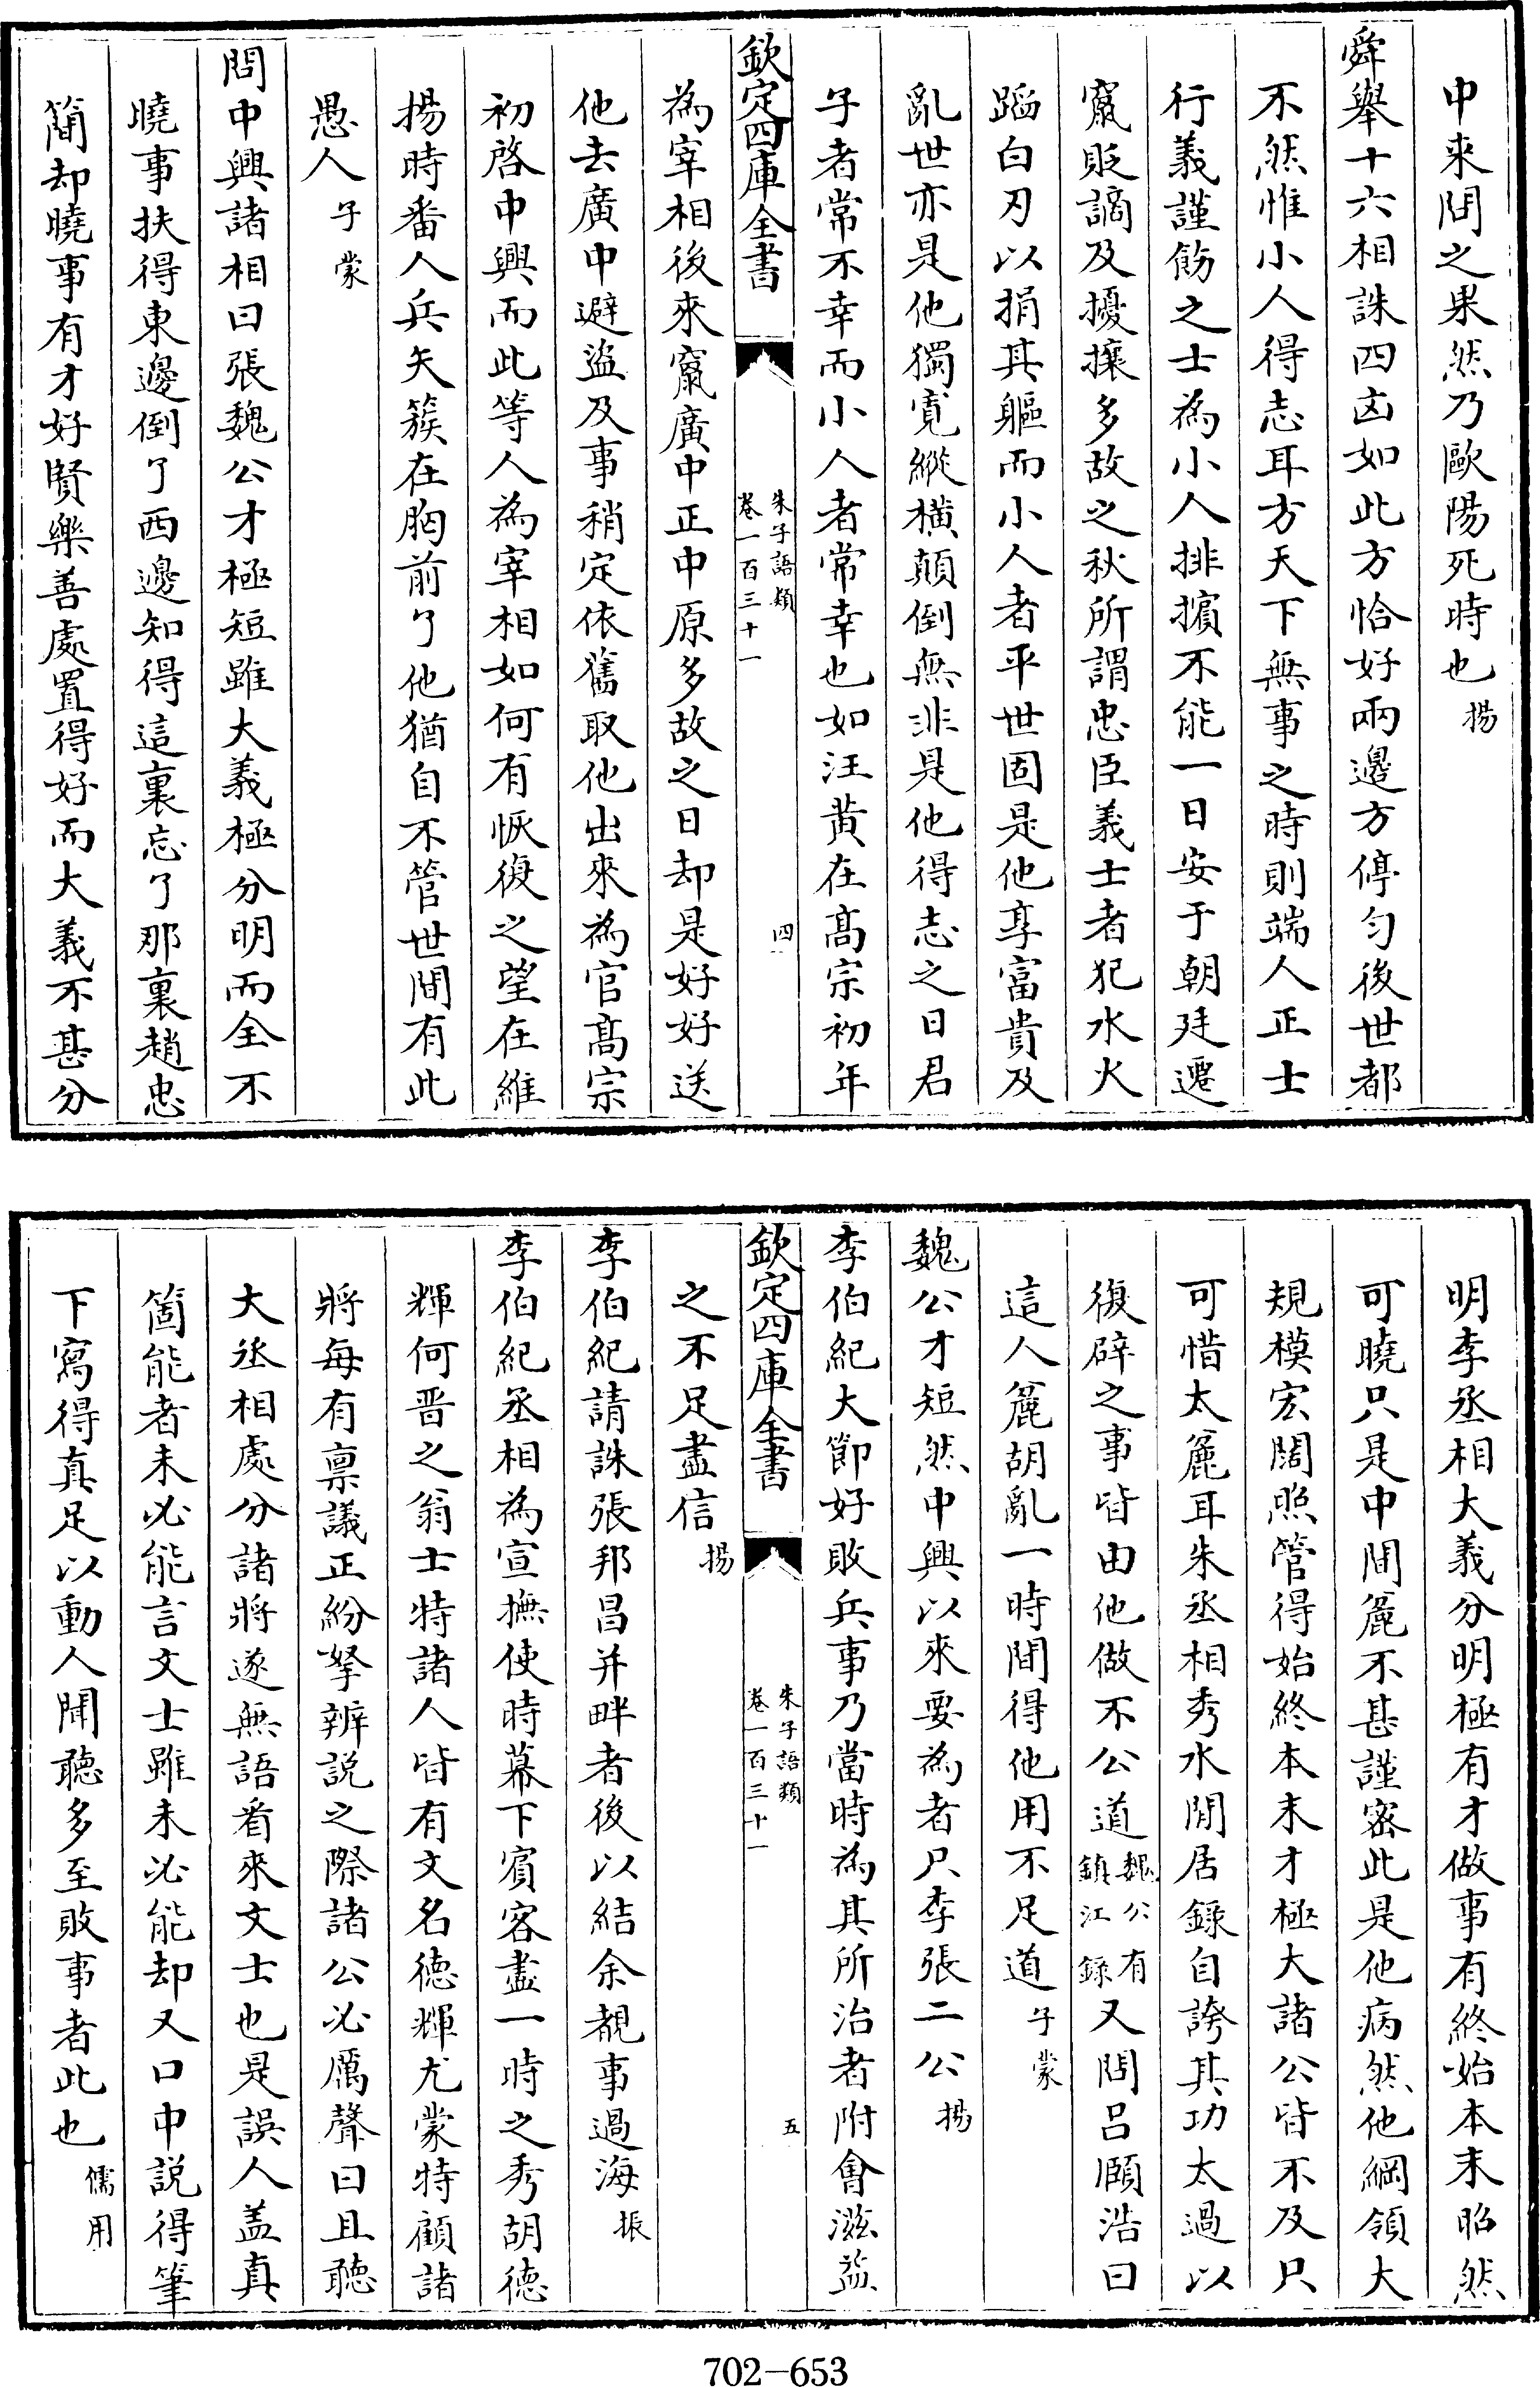 中來問之果然乃歐陽死時也揚
舜舉十六相誅四凶如此方恰好兩邊方停勻後世都
不然惟小人得志耳方天下無事之時則端人正士
行義謹飭之士為小人排擯不能一日安于朝廷遷
竄貶謫及擾攘多故之秋所謂忠臣義士者犯水火
蹈白刃以捐其軀而小人者平世固是他享富貴及
亂世亦是他獨寛縱橫顛倒無非是他得志之日君
子者常不幸而小人者常幸也如汪黄在髙宗初年
欽定四庫全書 朱子語類 卷一百三十一 四
為宰相後來竄廣中正中原多故之日却是好好送
他去廣中避盗及事稍定依舊取他出來為官髙宗
初啓中興而此等人為宰相如何有恢復之望在維
揚時番人兵矢簇在胸前了他猶自不管世間有此
愚人子蒙
問中興諸相曰張魏公才極短雖大義極分明而全不
曉事扶得東邊倒了西邊知得這裏忘了那裏趙忠
簡却曉事有才好賢樂善處置得好而大義不甚分
明李丞相大義分明極有才做事有終始本末昭然
可曉只是中間麄不甚謹密此是他病然他綱領大
規模宏闊照管得始終本末才極大諸公皆不及只
可惜太麄耳朱丞相秀水閒居錄自誇其功太過以
復辟之事皆由他做不公道魏公有鎮江錄又問呂頤浩曰
這人麄胡亂一時間得他用不足道子蒙
魏公才短然中興以來要為者只李張二公揚
李伯紀大節好敗兵事乃當時為其所治者附會滋益
欽定四庫全書 朱子語類 卷一百三十一 五
之不足盡信揚
李伯紀請誅張邦昌并畔者後以結余覩事過海振
李伯紀丞相為宣撫使時幕下賓客盡一時之秀胡德
輝何晋之翁士特諸人皆有文名德輝尤蒙特顧諸
將每有禀議正紛拏辨説之際諸公必厲聲曰且聽
大丞相處分諸將遂無語看來文士也是誤人盖真
箇能者未必能言文士雖未必能却又口中説得筆
下寫得真足以動人聞聽多至敗事者此也儒用
702-653